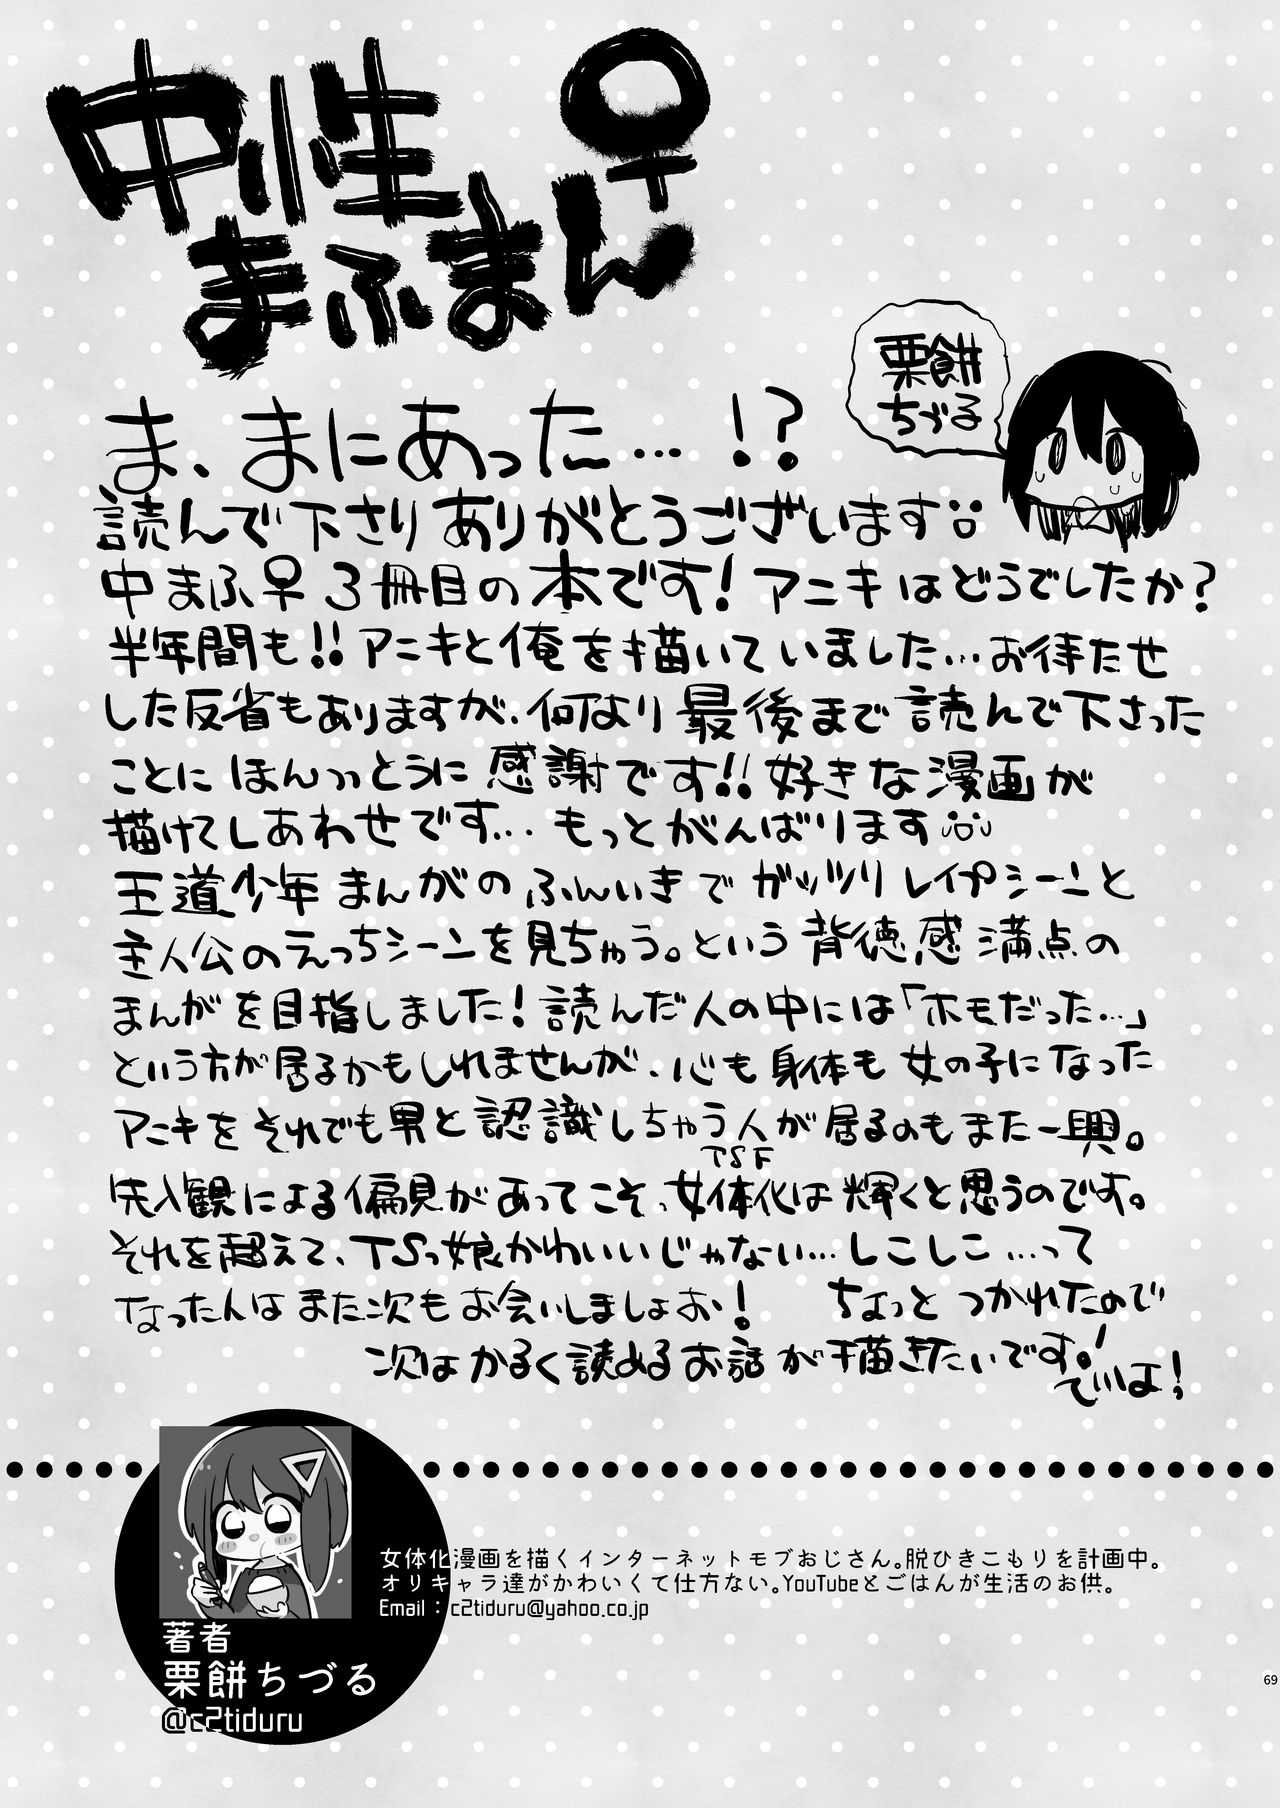 中性
まふまん♀
栗餅
ちづる
ま、まにあった…!?
読んで下さりありがとうございます
中まふ♀3冊目の本です!アニキはどうでしたか?
半年間も!!アニキと俺を描いていました…お待たせ
した反省もありますが、何より最後まで読んで下さった
ことにほんっっとうに感謝です!!好きな漫画が
描けてしあわせです…もっとがんばります
王道少年まんがのふんいきでガッツリレイプシーンと
主人公のえっちシーンを見ちゃう。という背徳感満点の
まんがを目指しました!読んだ人の中には「ホモだった…」
という方が居るかもしれませんが、心も身体も女の子になった
アニキをそれでも男と認識しちゃう人が居るのもまた一興。
TSF
先入観による偏見があってこそっ女体化は輝くと思うのです。
それを超えて、TSっ娘かわいいじゃない…しこしこ…って
なった人はまた次もお会いしましょお!ちょっとつかれたので
次はかるく読めるお話が描きたいです!
でいよ!
女体化漫画を描くインターネットモブおじさん。脱ひきこもりを計画中。
オリキャラ達がかわいくて仕方ない。YouTubeとごはんが生活のお供。
Email：c2tiduru@yahoo.co.jp
著者
栗餅ちづる
@c2tiduru
69